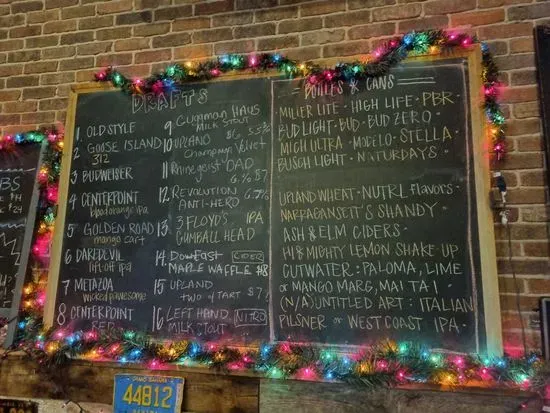 DRAFTS
1 OLD STYLE
2 GOOSE ISLAND
312
3 BUDWEISER
4 CENTERPOINT
blood orange ipa
5 GOLDEN ROAD
mango cart
6 DAREDEVIL
lift off ipa
7 METAZOA
wicked pawesome
8 CENTERPOINT
RED
9 Guggman HAUS
MILK STOUT
10 UPLAND 5.5%
Champagne Velvet
11 Rhinegeist DAD
6% $7
12 REVOLUTION
ANTI-HERO 6.7%
13 3 FLOYD'S IPA
GUMBALL HEAD
14 DownEast CIDER
MAPLE WAFFLE $8
15 UPLAND
TWO OF TART $7
16 LEFT HAND NITRO
MILK STOUT
BOTTLES & CANS
MILLER LITE • HIGH LIFE • PBR •
BUD LIGHT • BUD • BUD ZERO •
MICH ULTRA • MODELO • STELLA •
BUSCH LIGHT • NATURDAYS •
UPLAND WHEAT • NUTRL flavors •
NARRAGANSETT'S SHANDY •
ASH & ELM CIDERS •
HI & MIGHTY LEMON SHAKE-UP
CUTWATER: PALOMA, LIME
or MANGO MARG, MAI TAI
(N/A) UNTITLED ART: ITALIAN
PILSNER or WEST COAST IPA •
44812